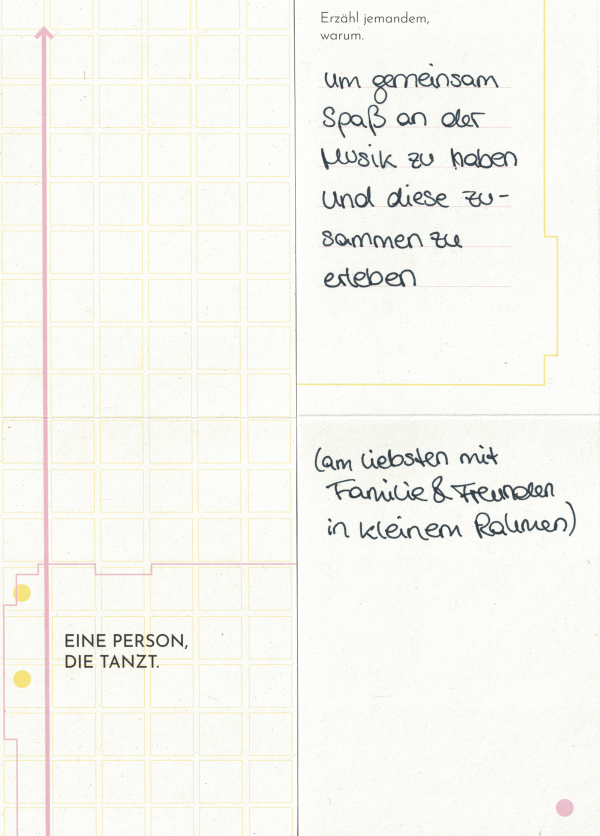 EINE PERSON,
DIE TANZT.
Erzähl jemandem,
warum.
um gemeinsam
Spaß an der
Musik zu haben
und diese zu-
sammen zu
erleben
(am liebsten mit
Familie & Freunden
in kleinem Rahmen)